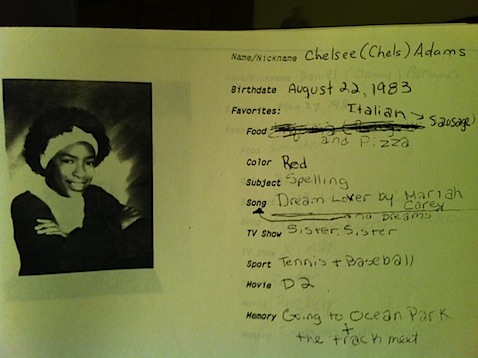 Name/Nickname Chelsee (Chels) Adams
Birthdate August 22, 1983
Favorites: Italian
Food Sausage)
and Pizza
Color Red
Subject Spelling
Song Dream Lover by Mariah
Carey
and Dreams
TV Show Sister, Sister
Sport Tennis + Baseball
Movie D2
Memory Going to Ocean Park
+
the track meet